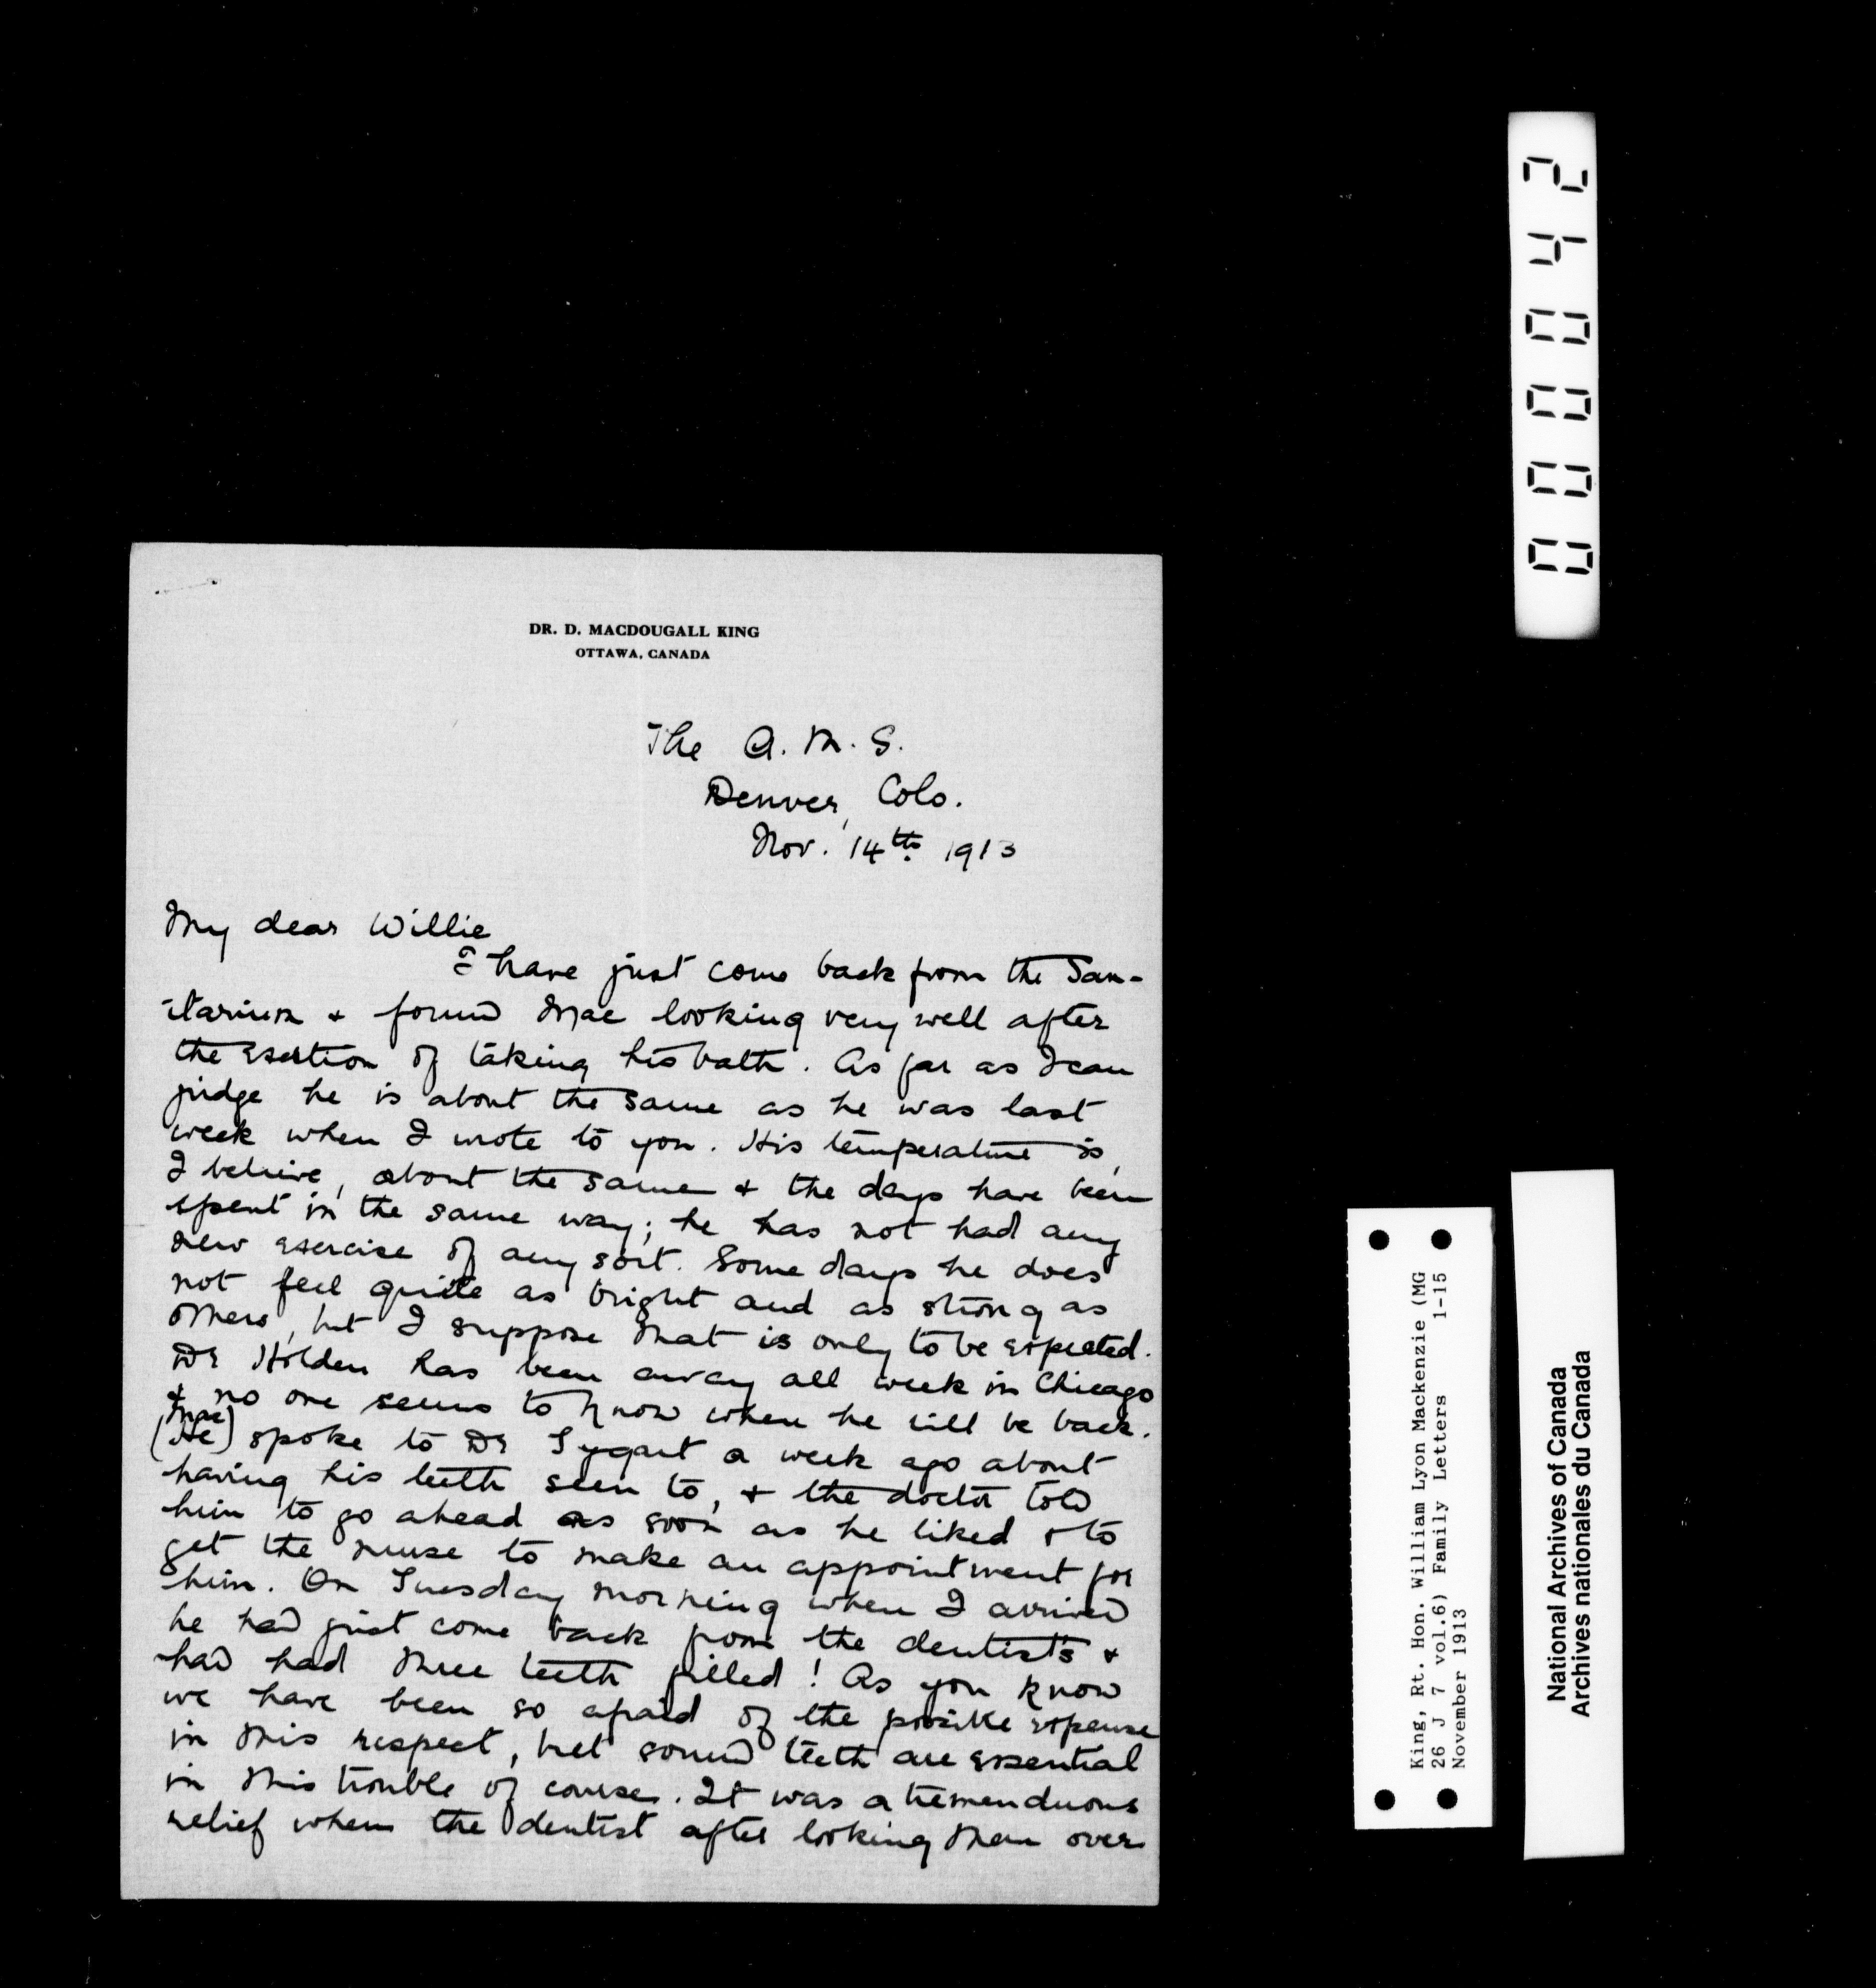 DR. D. MACDOUGALL KING
OTTAWA, CANADA
The A. M. S.
Denver, Colo.
Nov. 14th 1913
My dear Willie
I have just come back from the San-
itarium & found Mac looking very well after
the exertion of taking his bath. As far as I can
judge he is about the same as he was last
week when I wrote to you. His temperature is,
I believe, about the same & the days have been
spent in the same way; he has not had any
new exercise of any sort. Some days he does
not feel quite as bright and as strong as
others, but I suppose that is only to be expected.
Dr Holden has been away all week in Chicago
& no one seems to know when he will be back.
Mac
(He) spoke to Dr a week ago about
having his teeth seen to, & the doctor told
him to go ahead as soon as he liked & to
get the nurse to make an appointment for
him. On Tuesday morning when I arrived
he had just come back from the dentist's &
had had three teeth filled! As you know
we have been so afraid of the possible expense
in this respect, but sound teeth are essential
in this trouble of course. It was a tremenduous
relief when the dentist after looking them over
000042
King, Rt. Hon. William Lyon Mackenzie (MG
26 J 7 vol.6) Family Letters 1-15
November 1913
National Archives of Canada
Archives nationales du Canada